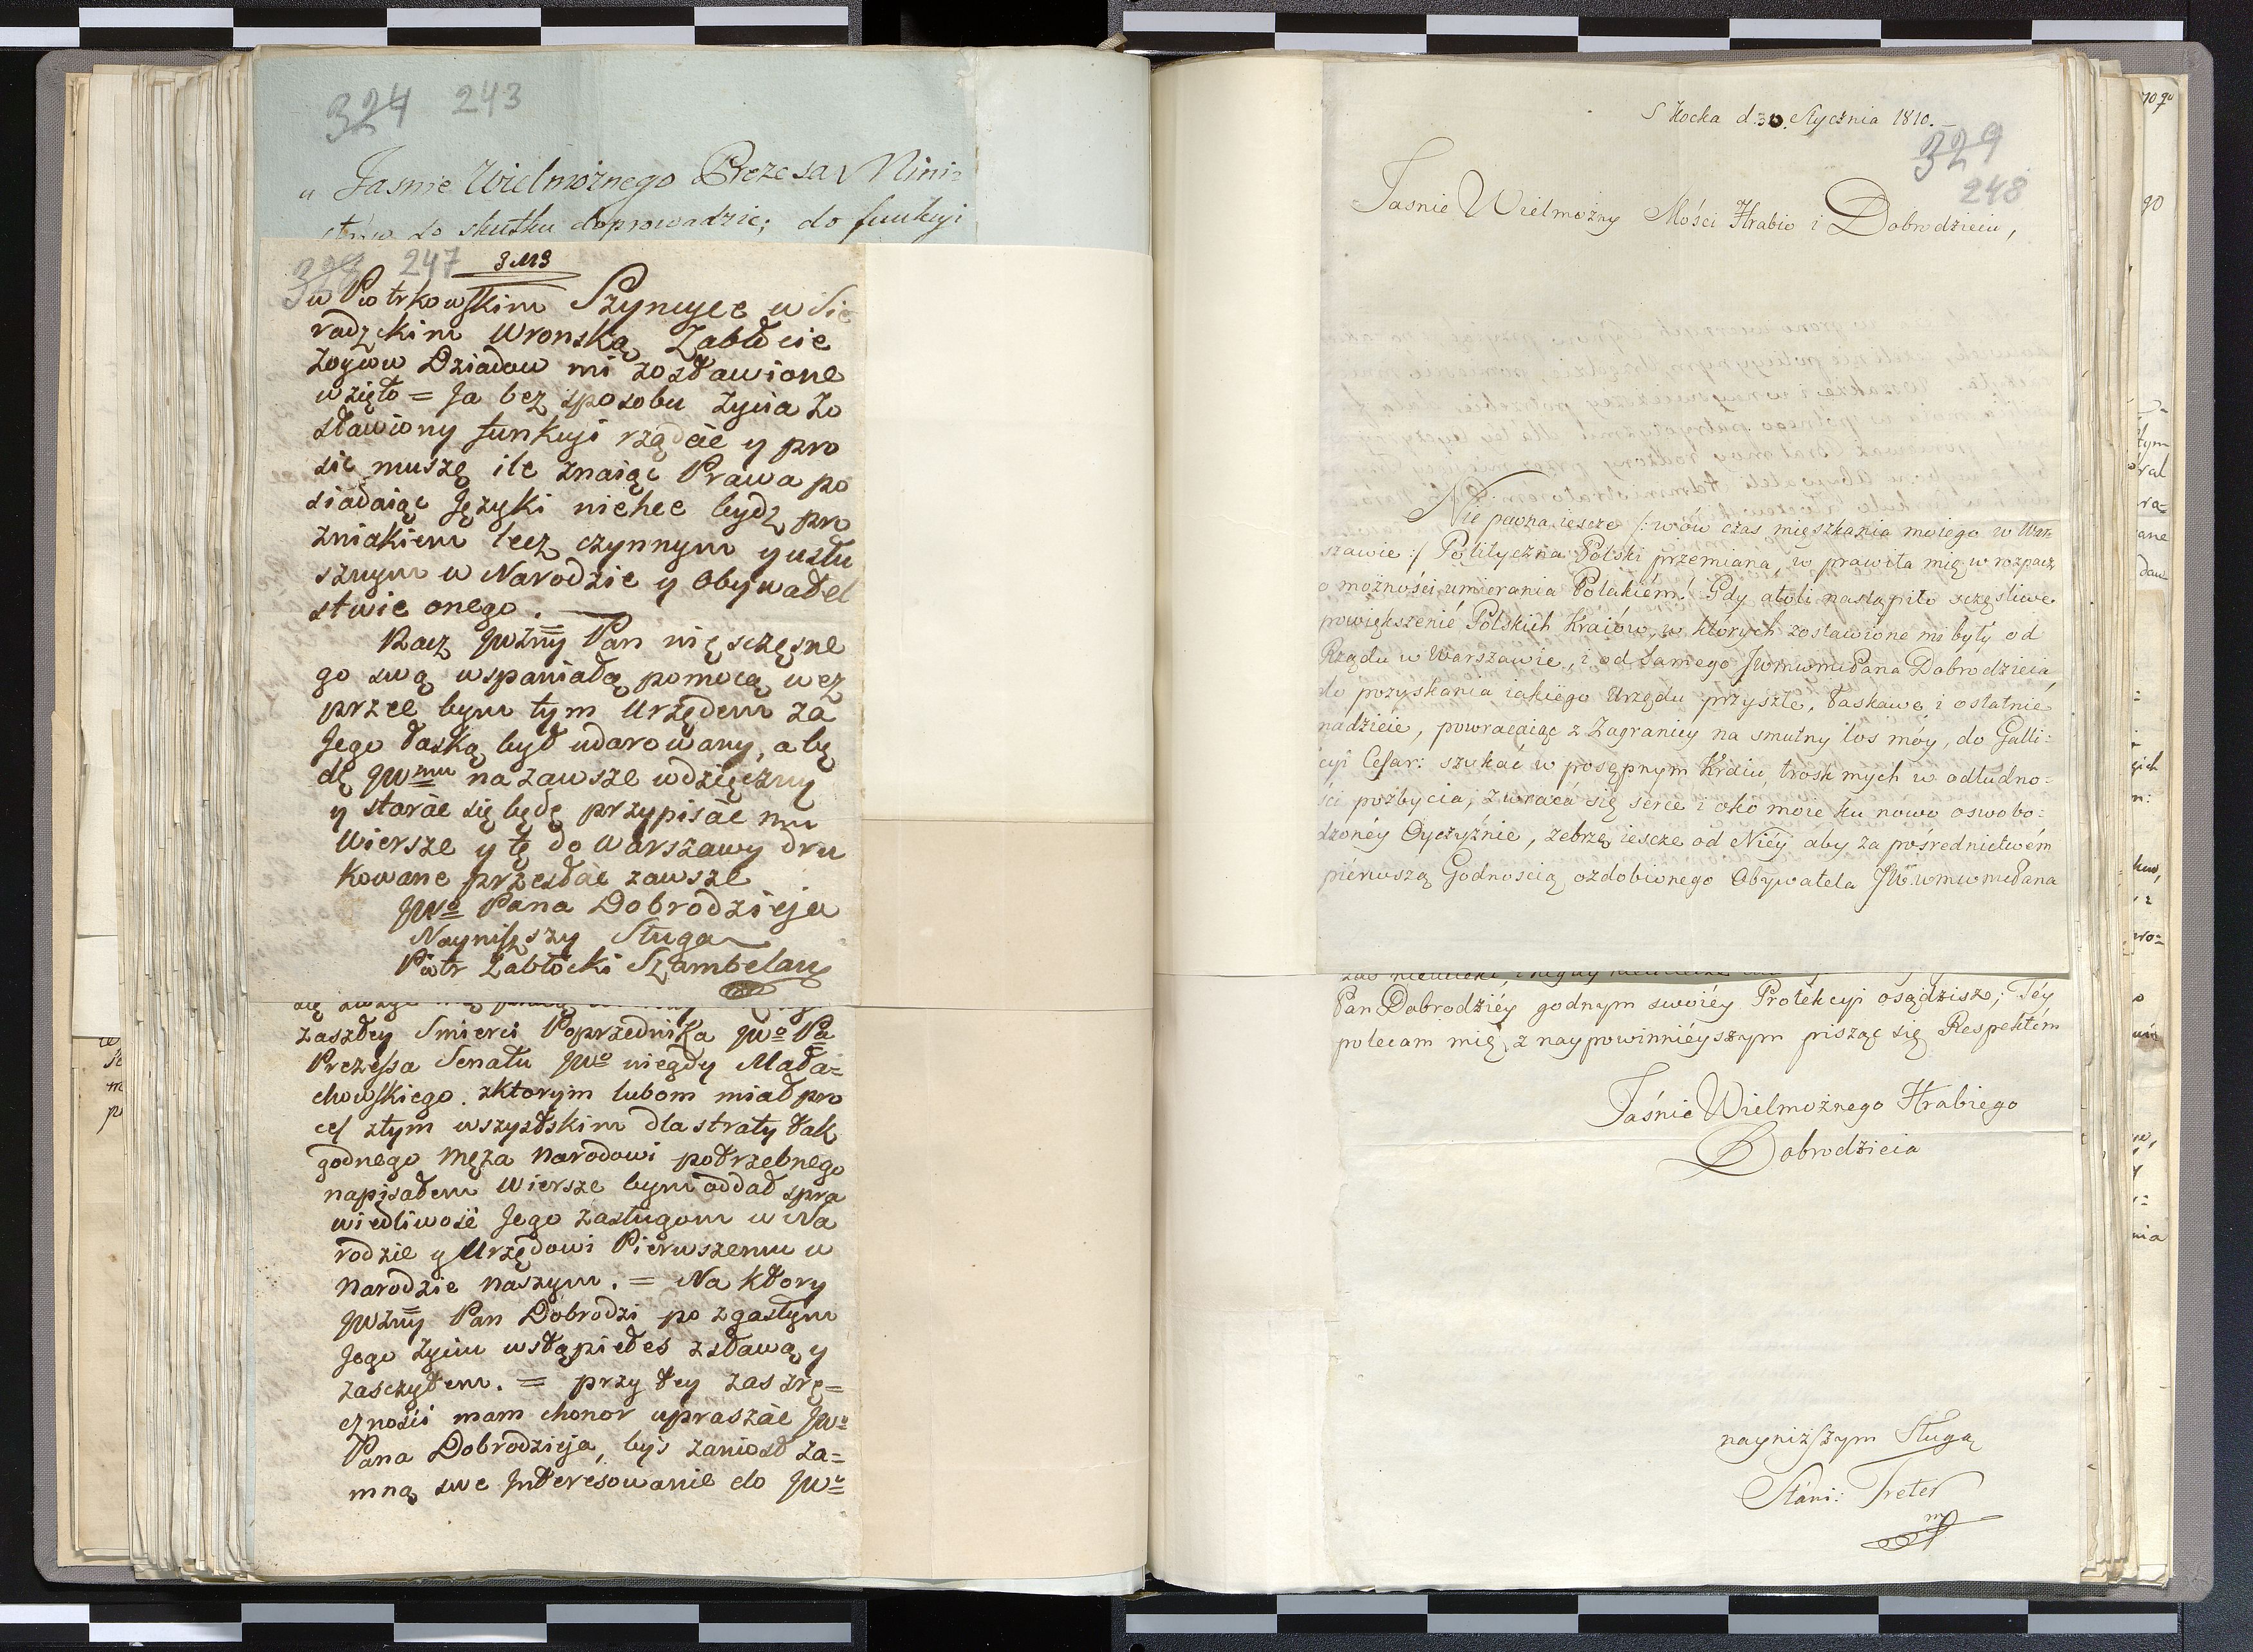 324 243
„ Jasnie Wielmożnego Prezesa Mini=
strów do skutku doprowadzic; do funkcyi
328 247 3M3
w Piotrkowskim Szynczyce w Sie
radzkim Wronską Zabłocie
zoycow Dziadow mi zostawione
wzięto = Ja bez sposobu życia zo
stawiony funkcyi rządac y pro
sic muszę ile znaiąc Prawa po
siadaiąc Języki niehce bydz pro
zniakiem lecz czynnym y usłu
sznym w Narodzie y Obywatel
stwie onego. —
Racz JWżny Pan nię sczęsne
go swą wspaniałą pomocą wez
przec bym tym Urzędem za
Jego łaską był udarowany, a bę
dę JWmu na zawsze wdzięczny
y starac się będę przypisac mu
Wiersze y tę do Warszawy dru
kowane przesłac zawsze
JWo Pana Dobrodzieja
Nayniszszy Sługa
Piotr Zabłocki Szambelan
zaszłey Smierci Poprzednika JWo Pa
Prezessa Senatu JWo niegdy Mała=
chowskiego. zktorym lubom miał pro
ces ztym wszystskim dla straty tak
godnego Męza Narodowi potrzebnego
napisałem Wiersze bym oddał spra
wiedliwosć Jego zasługom w Na
rodzie y Urzędowi Pierwszemu w
Narodzie naszym. = Na ktory
JWżny Pan Dobrodzi po zgasłym
Jego życiu wstąpiełes zsławą y
zasczytem. = przy tey zas zrę=
cznosci mam chonor upraszac JWo
Pana Dobrodzieja, bys zaniosł za=
mną swe Jnteresowanie do JWo
S Kocka d. 30. Stycznia 1810. —
329
248
Jasnie Wielmożny Mości Hrabio i Dobrodzieiu,
Nie pewna iescze /: wów czas mięszkania moiego w War=
szawie :/ Polityczna Polski przemiana, w prawiła mię w rozpacz
o możności umierania Polakiém! Gdy atoli nastąpiło sczęsliwe
powiększenié Polskich Kraiów, w których zostawione mi były od
Rządu w Warszawie, i od Samego JWWMWMCPana Dobrodzieia
do pozyskania iakiego Urzędu przyszłe, łaskawe i ostatnie
nadzieie, powracaiąc z Zagranicy na smutny los móy, do Galli:
cyi Cesar: szukać w posępnym Kraiu, trosk mych w odludno=
ści pozbycia, zwraca się serce i oko moie ku nowo oswobo:
dzonéy Oyczyźnie, żebrzę iescze od Niéy aby za pośrednictwém
piérwszą Godnością ozdobionego Obywatela JWWMWMCPana
Pan Dobrodziéy godnym swoiéy Protekcyi osądzisz; Téy
polecam mię, z naypowinniéyszym pisząc się Respektém
Jaśnie Wielmożnego Hrabiego
Dobrodzieia
nayniższym Sługą
Stani: Treter